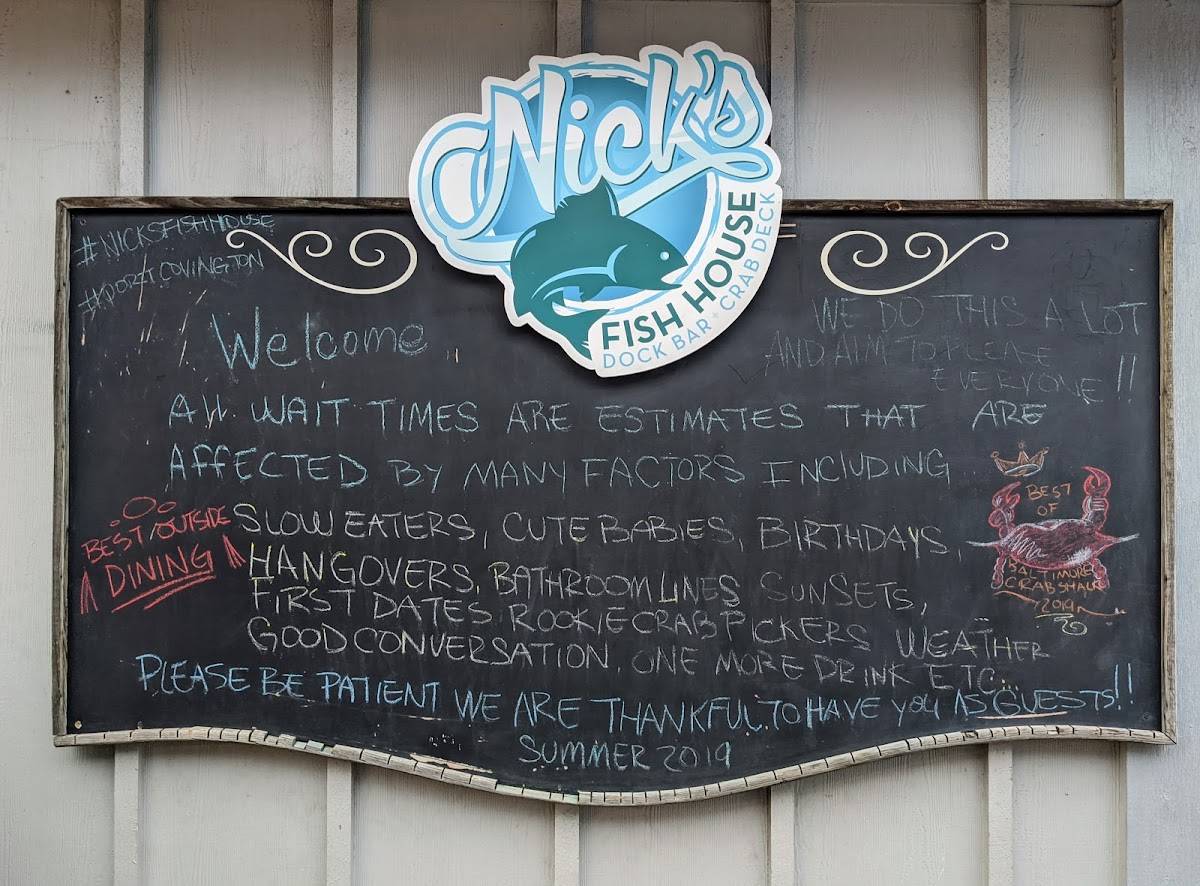 Nick's
FISH HOUSE
DOCK BAR + CRAB DECK
#NICKSFISHHOUSE
#PORTCOVINGTON
WE DO THIS A LOT
AND AIM TO PLEASE
EVERYONE!!
Welcome
All WAIT TIMES ARE ESTIMATES THAT ARE
AFFECTED BY MANY FACTORS INCLUDING
SLOW EATERS, CUTE BABIES, BIRTHDAYS,
HANGOVERS, BATHROOM LINES SUNSETS,
FIRST DATES, ROOKIE CRAB PICKERS, WEATHER
GOOD CONVERSATION, ONE MORE DRINK ETC...
PLEASE BE PATIENT WE ARE THANKFUL TO HAVE YOU AS GUESTS!!
SUMMER 2019
BEST OUTSIDE
DINING
BEST
OF
BALTIMORE
CRAB SHACK
2019